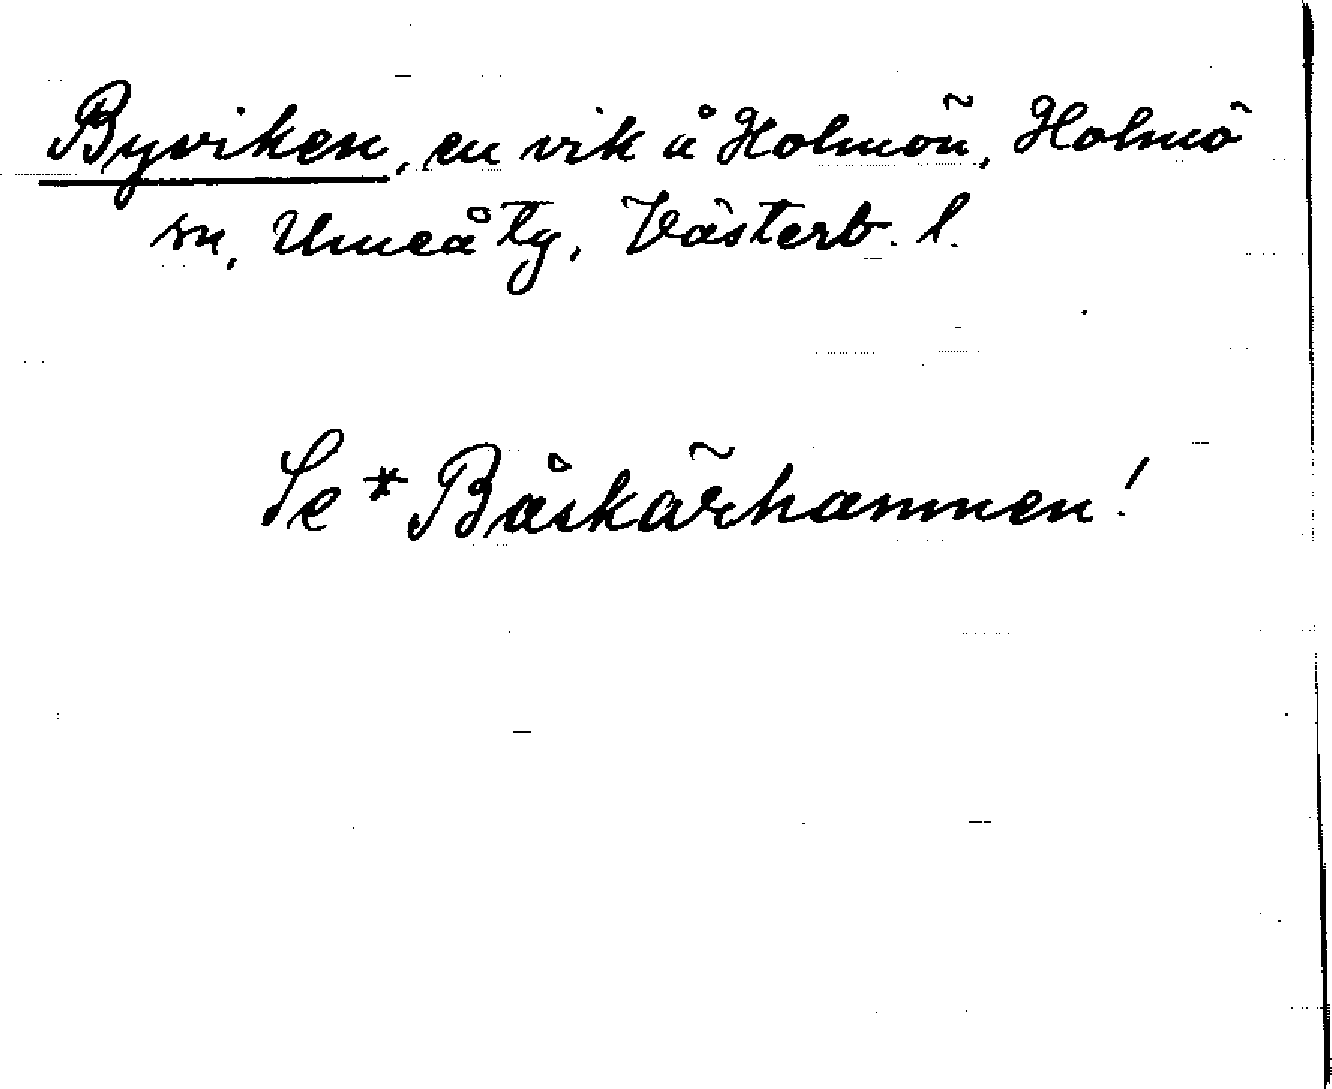 Byviken, en vik å Holmön, Holmö
sn, Umeå tg, Västerb. l.
Se * Båskärhamnen!